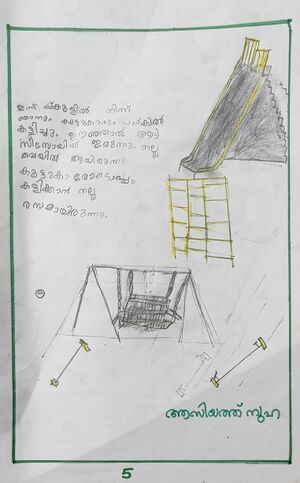 ഇന്ന് സ്കൂളിൽ നിന്ന്
ഞാനും കൂട്ടുകാരും പാർക്കിൽ
കളിച്ചു. ഊഞ്ഞാൽ ആടി
സീസോവിൽ ഇരുന്നു. നല്ല
വെയിൽ ആയിരുന്നു.
കൂട്ടുകാ രോടൊപ്പം
കളിക്കാൻ നല്ല
രസമായിരുന്നു.
ആസിയത്ത് നുഹ
5